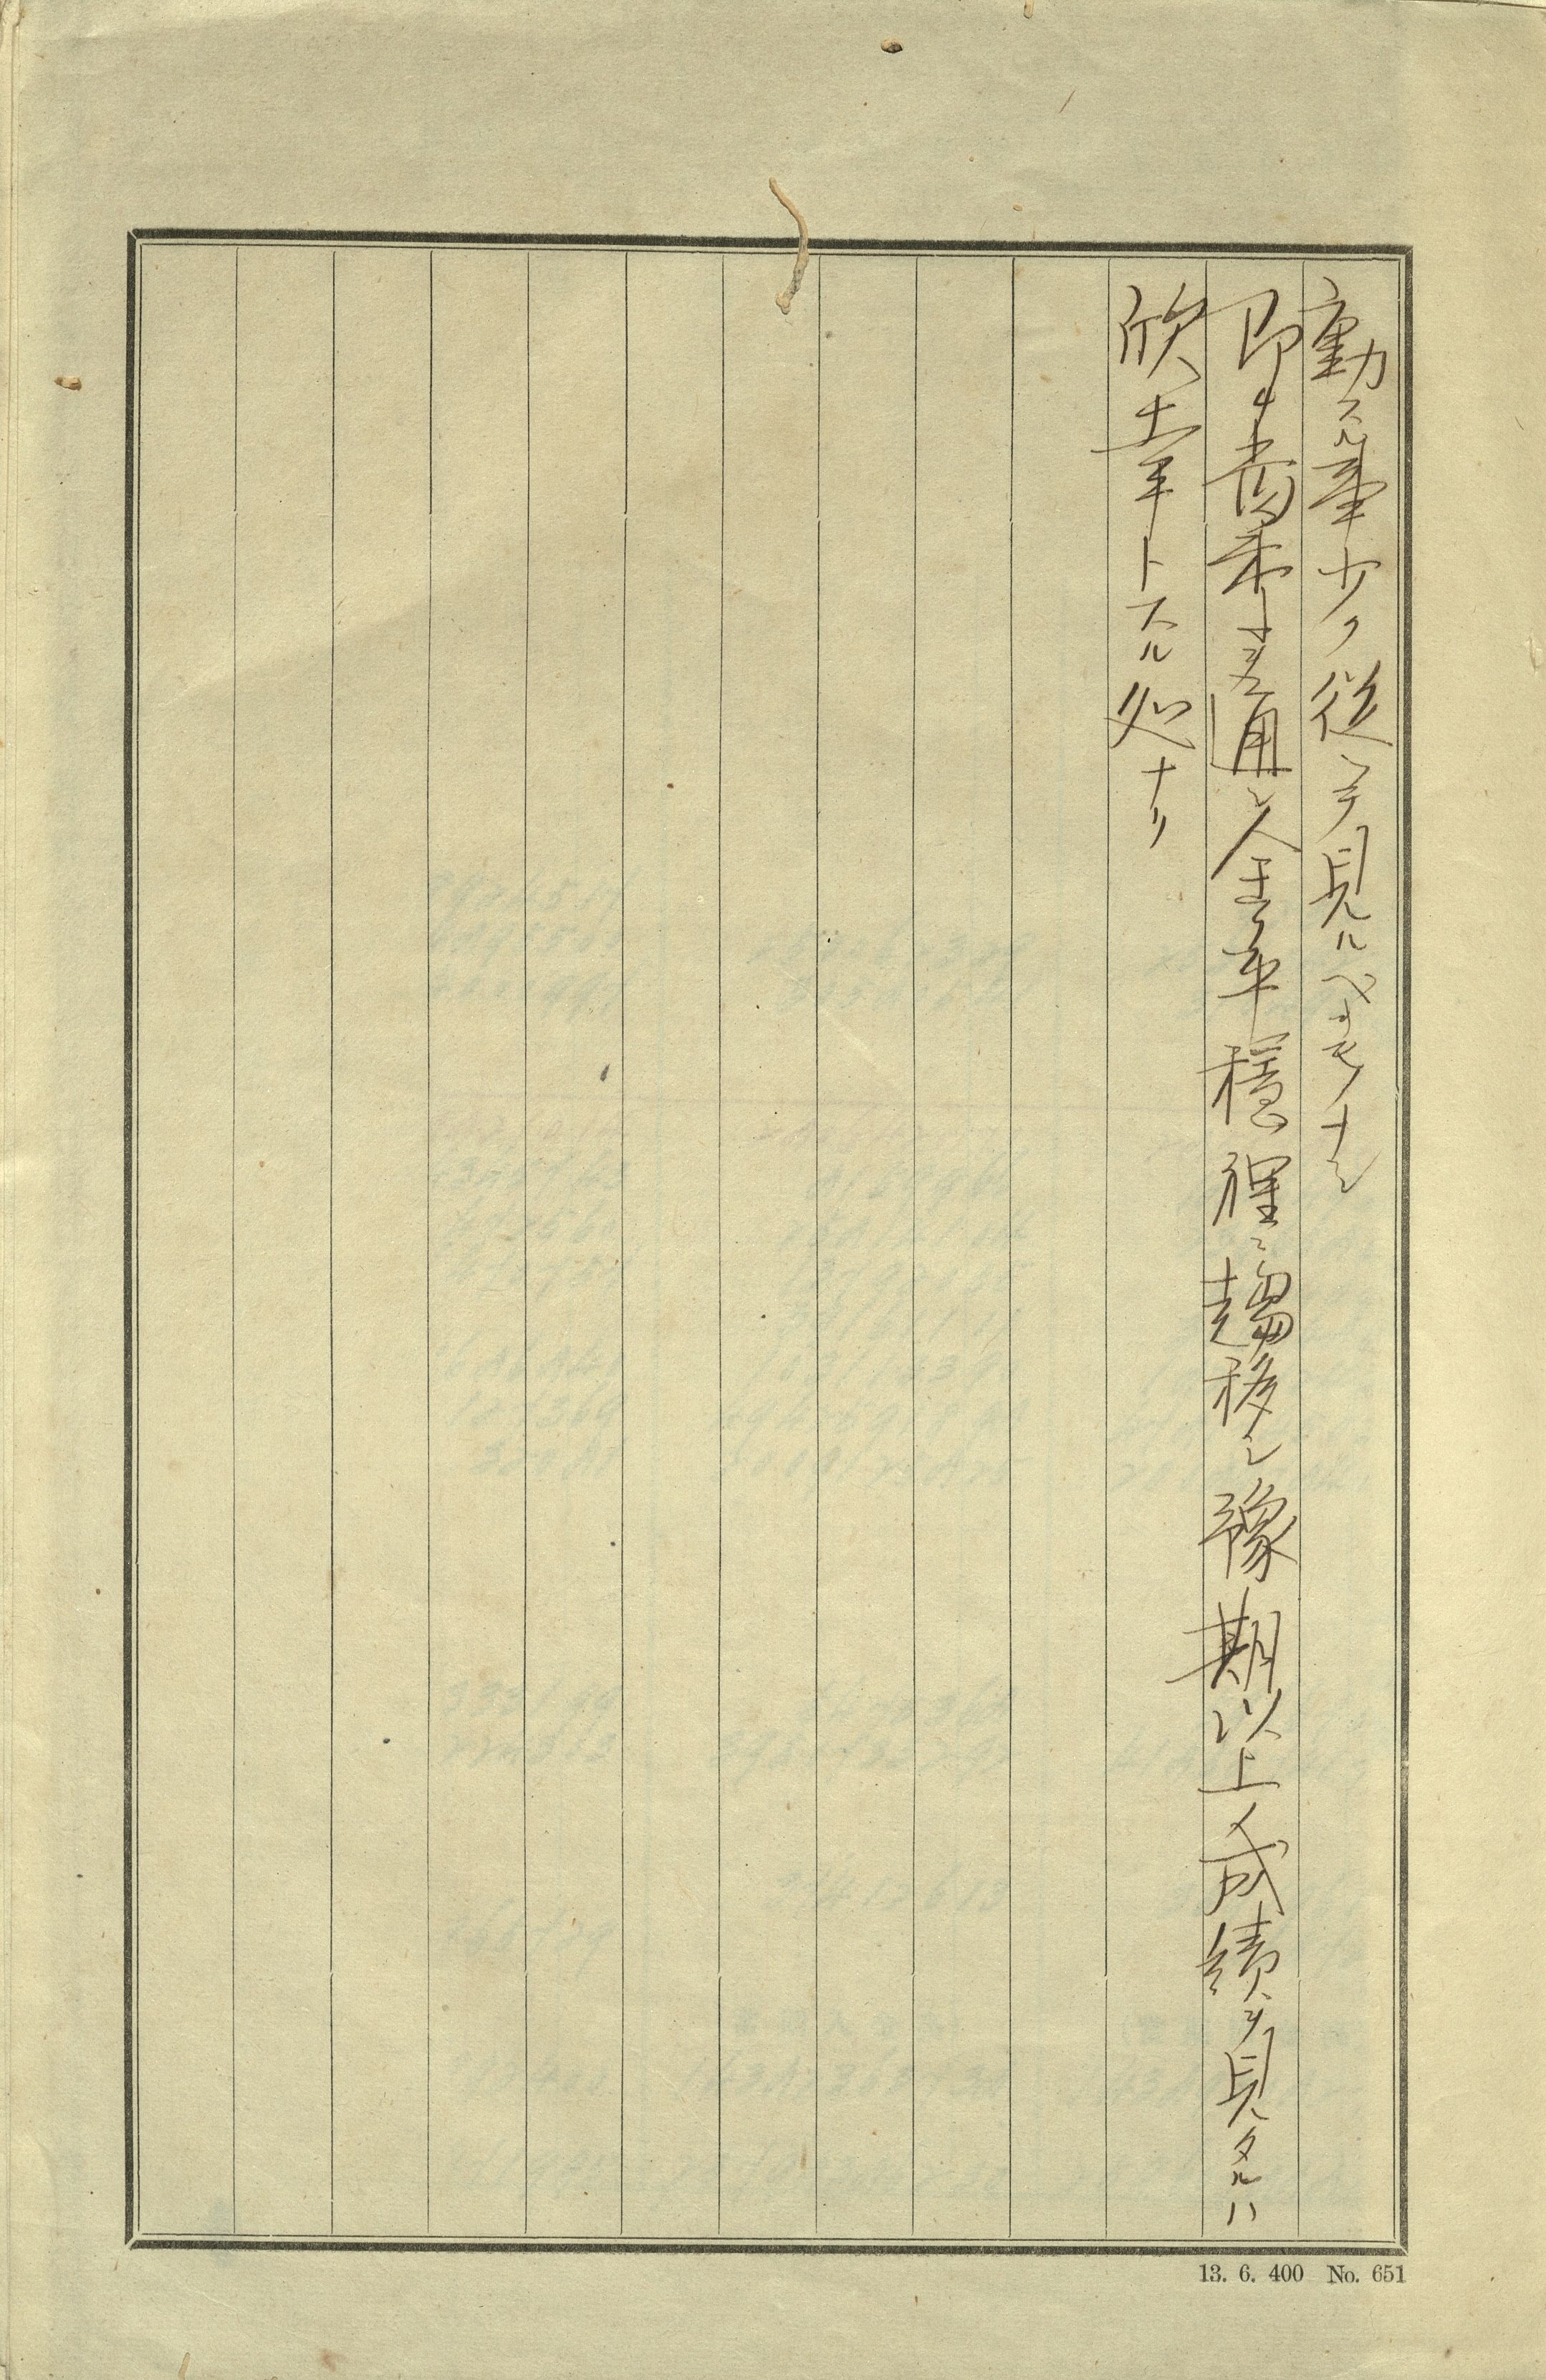 動スル事少ク従ツテ見ルベキモノナシ
即チ当期ヲ通シ全ク平穏裡ニ趨移シ豫期以上ノ成績ヲ見タルハ
欣幸トスル処ナリ
13. 6. 400 No. 651